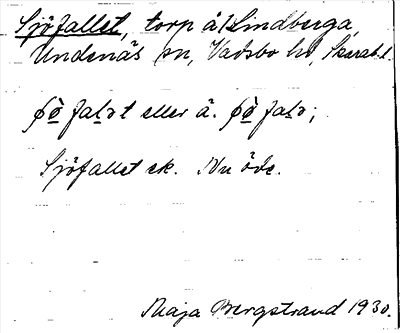 Sjöfallet, torp å Lindberga,
Undenäs sn, Vadsbo hd, Skarab. l.
fal<u>ə</u>t eller å.
Sjöfallet ek. Nu öde.
Maja Bergstrand 1930.